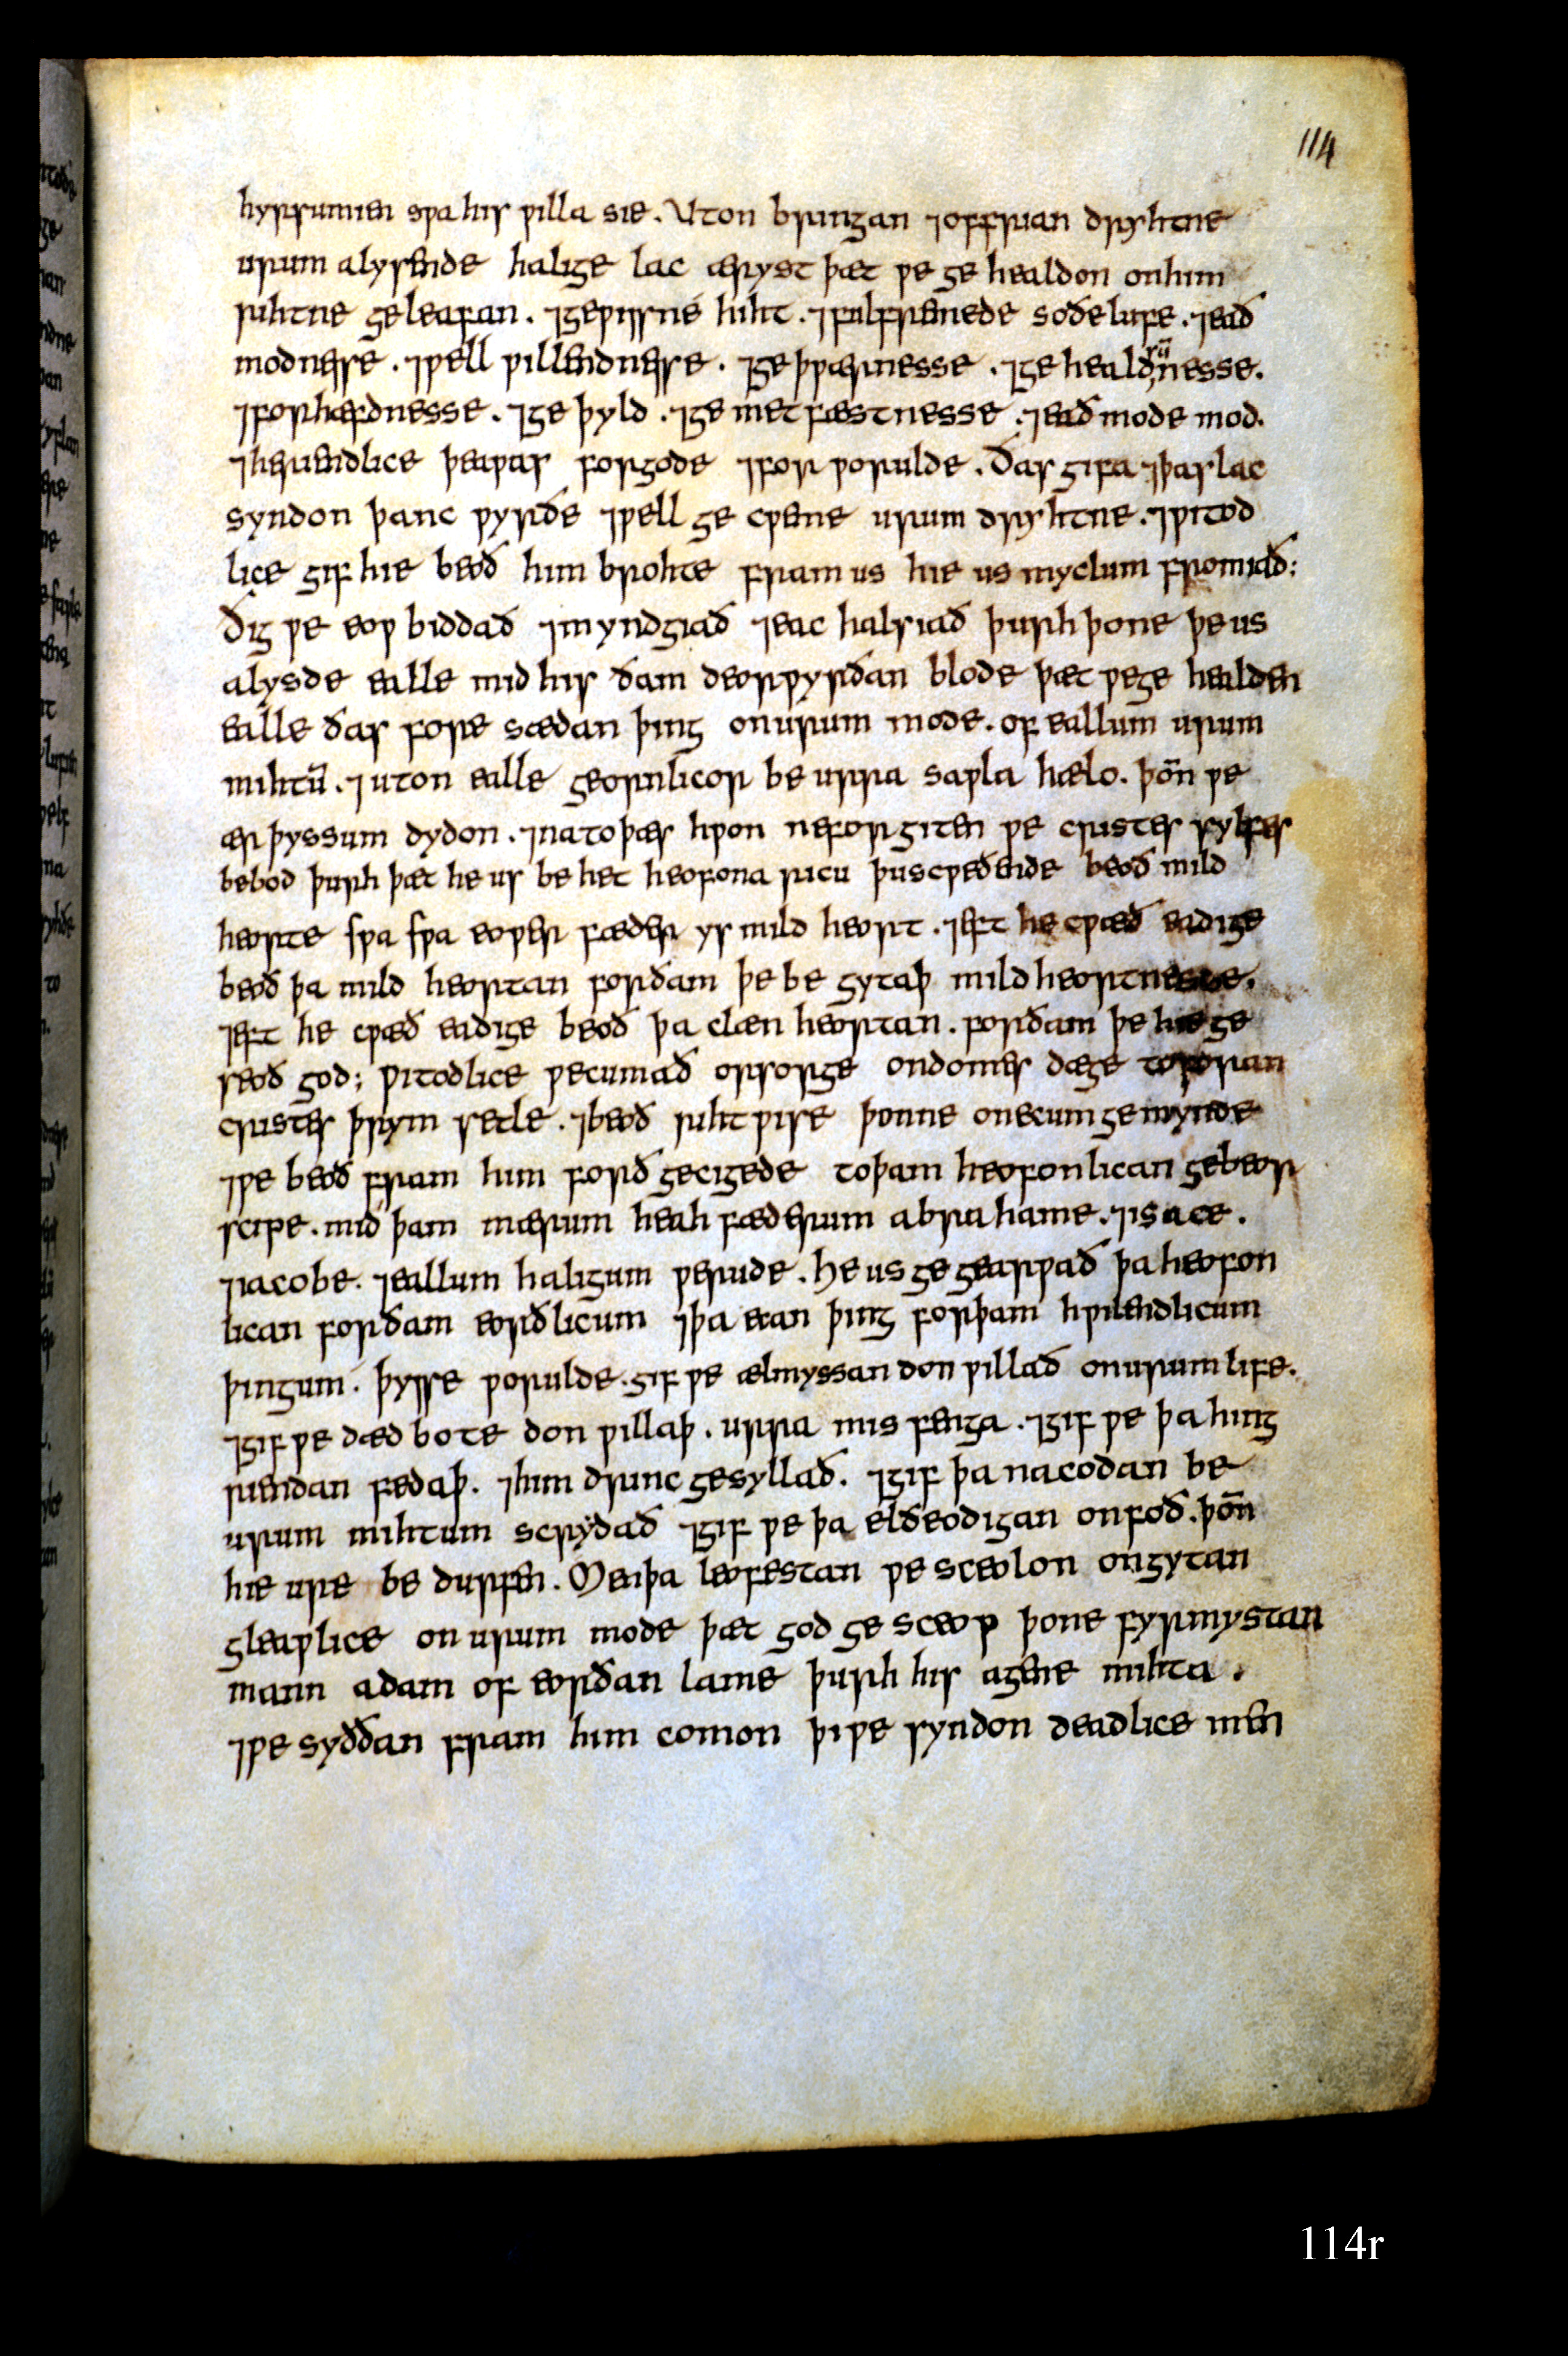 114
hyrsumien ƿa his ƿilla sie. Uton bringan ⁊offrian dryhtne
urum alysende halige lac æryst þæt ƿe ge healdon onhim
rihtne geleafan. ⁊geƿissne hiht. ⁊fulfremede soðelufe. ⁊eað
modnesse. ⁊ƿell ƿillendnesse. ⁊ge þƿærnesse. ⁊ge healdsūnesse.
⁊forhæfdnesse. ⁊ge þyld. ⁊ge metfæstnesse. ⁊eað mode mod.
⁊heriendlice þeaƿas forgode ⁊for ƿorulde. Ðas gifa ⁊þas lac
syndon þanc ƿyrðe ⁊ƿell ge cƿeme urum dryhtne. ⁊ƿitod
lice gif hie beoð him brohte fram us hie us myclum fromiað:
Ðig ƿe eoƿ biddað ⁊myndgiað ⁊eac halsiað þurh þone þe us
alysde ealle mid his ðam deorƿyrðan blode þæt ƿege healden
ealle ðas fore sædan þing onurum mode. of eallum urum
mihtū. ⁊uton ealle geornlicor be urra saƿla hælo. þoñ ƿe
ær þyssum dydon. ⁊nato þæs hƿon neforgiten ƿe cristes sylfes
bebod þurh þæt he us be het heofona ricu þuscƿeðende beoð mild
heorte sƿa sƿa eoƿer fæder ys mild heort. ⁊eft he cƿæð eadige
beoð þa mild heortan forðam þe be gytaþ mildheortnesse.
⁊eft he cƿæð eadige beoð þa clæn heortan. forðam þe hie ge
seoð god; Ƿitodlice ƿecumað orsorge ondomes dæge toforan
cristes þrym setle. ⁊beoð riht ƿise þonne onecum gemynde
⁊ƿe beoð fram him forð gecigede toþam heofonlican gebeor
scipe. mid þam mærum heah fæderum abrahame. ⁊isace.
⁊iacobe. ⁊eallum haligum ƿerude. He us ge gearƿað þa heofon
lican forðam eorðlicum ⁊þa ecan þing forþam hƿilendlicum
þingum. þysse ƿorulde. gif ƿe ælmyssan don ƿillað onurum life.
⁊gif ƿe dæd bote don ƿillaþ. urra mis fenga. ⁊gif ƿe þa hing
riendan fedaþ. ⁊him drinc gesyllað. ⁊gif þa nacodan be
urum mihtum scrydað ⁊gif ƿe þa elðeodigan onfoð. þoñ
hie ure be durfen. Men þa leofestan ƿe sceolon ongytan
gleaƿlice on urum mode þæt god ge sceop þone fyrmystan
mann adam of eorðan lame þurh his agene mihta.
⁊ƿe syððan fram him comon þi ƿe syndon deadlice men
114r